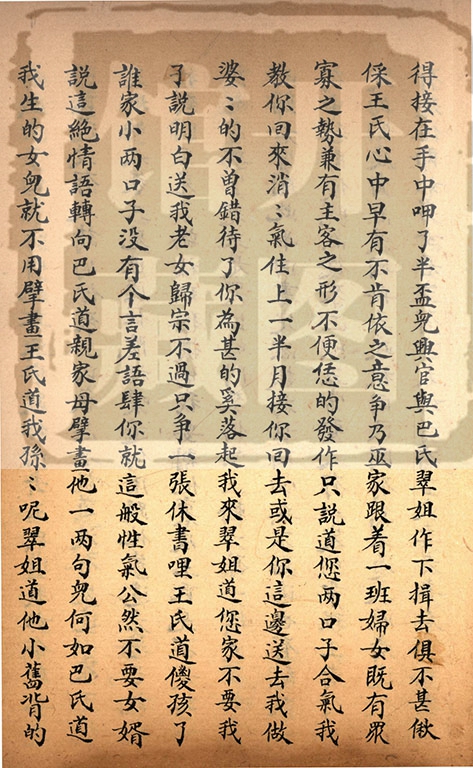 得接在手中呷了半盃兒興官與巴氏翠姐作下揖去俱不甚俶
倸王氏心中早有不肯依之意爭乃巫家跟着一班婦女既有眾
寡之勢兼有主客之形不便恁的發作只說道您两口子合氣我
教你回來消〻氣住上一半月接你回去或是你這邊送去我做
婆〻的不曾錯待了你為甚的奚落起我來翠姐道您家不要我
子說明白送我老女歸宗不過只爭一張休書哩王氏道儍孩了
誰家小两口子没有个言差語肆你就這般性氣公然不要女婿
說這絶情語轉向巴氏道親家母擘畫他一两句兒何如巴氏道
我生的女兒就不用擘畫王氏道我孫〻呢翠姐道他小舊背的